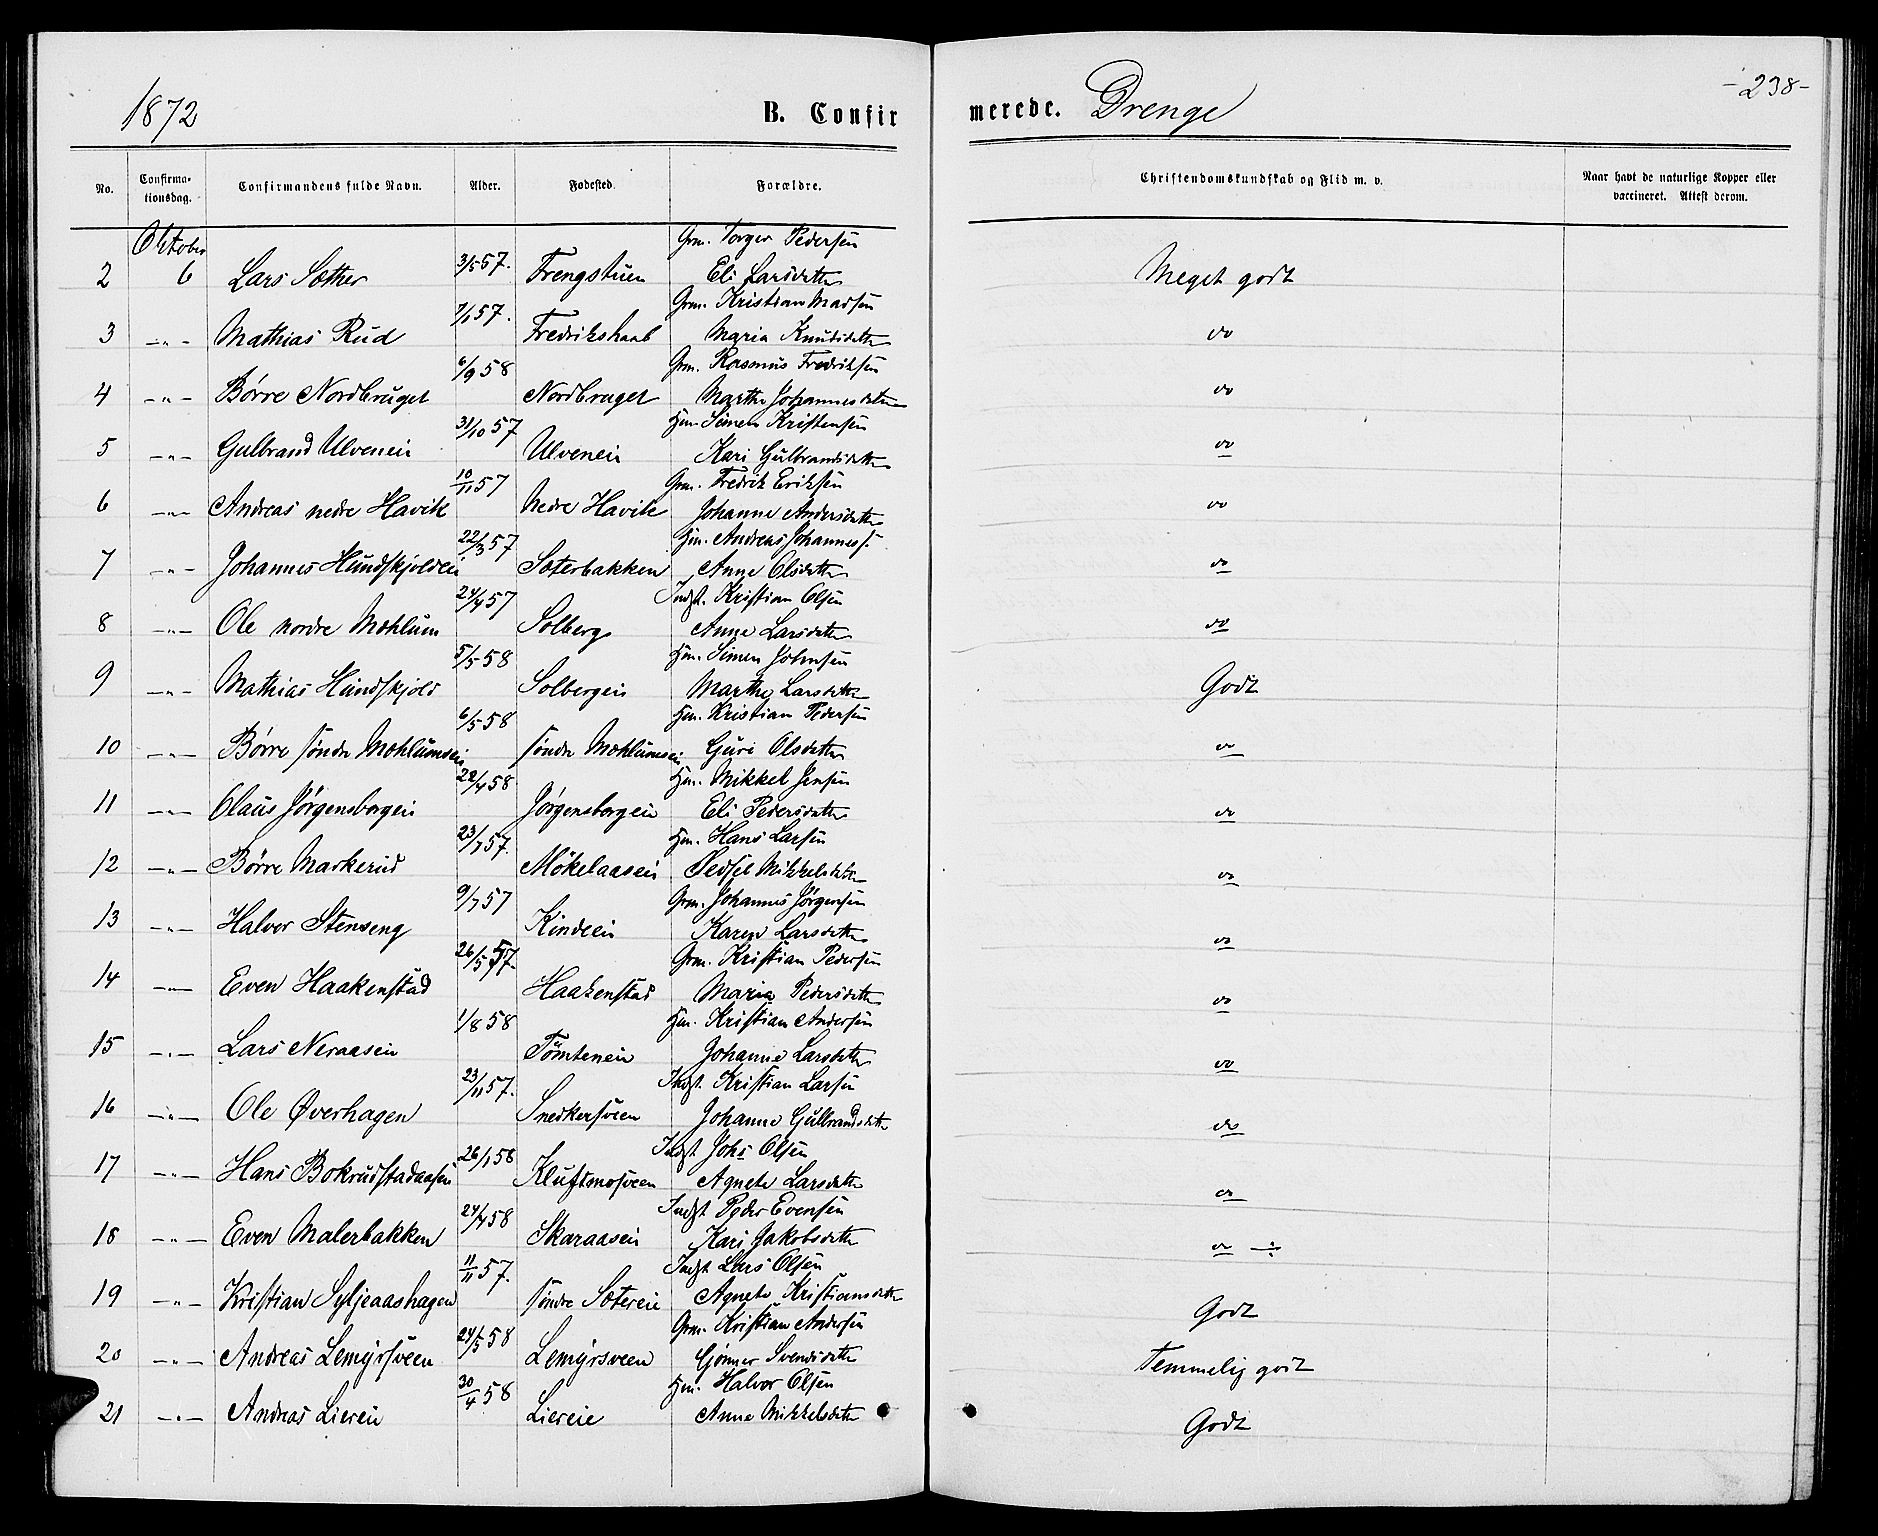 1872 B. Confirmerede. Drenge -238-
No. Confirmationsdag. Confirmandens fulde Navn. Alder. Fødested. Forældre. Christendomskundskab og Flid m. v. Naar havt de naturlige Kopper eller vaccineret. Attest derom.
Oktober Grm. Torger Pedersen
2 6 Lars Sæther 3/5 57. Trengstuen Eli Larsdatter Meget godt
Grm. Kristian Madsen
3 -"- Mathias Rud 7/1 57. Fredrikshaab Maria Knudsdatter do
Grm. Rasmus Fredriksen
4 -"- Børre Nordbruget 6/9 58 Nordbruget Marthe Johannesdatter do
Hm. Simen Kristensen
5 -"- Gulbrand Ulveneie 31/10 57 Ulveneie Kari Gulbrandsdatter do
Grm. Fredrik Eriksen
6 -"- Andreas nedre Havik 10/11 57 Nedre Havik Johanne Andersdatter do
Hm. Andreas Johanness.
7 -"- Johannes Hundskjoldeie 22/3 57 Sæterbakken Anne Olsdatter do
Indst. Kristian Olsen
8 -"- Ole nordre Mæhlum 24/4 57 Solberg Anne Larsdatter do
Hm. Simen Johnsen
9 -"- Mathias Hundskjold 5/5 58 Solbergeie Marthe Larsdatter Godt
Hm. Kristian Pedersen
10 -"- Børre søndre Mæhlumseie 6/5 58 søndre Mæhlumseie Guri Olsdatter do
Hm. Mikkel Jensen
11 -"- Claus Jørgensborgeie 22/4 58 Jørgensborgeie Eli Pedersdatter do
Hm. Hans Larsen
12 -"- Børre Markerud 23/7 57. Møkelaaseie Sedsel Mikkelsdatter do
Grm. Johannes Jørgensen
13 -"- Halvor Stenseng 9/7 57 Kindeeie Karen Larsdatter do
Grm. Kristian Pedersen
14 -"- Even Haakenstad 26/5 57. Haakenstad Maria Pedersdatter do
Hm. Kristian Andersen
15 -"- Lars Neraaseie 1/8 58 Tømteneie Johanne Larsdatter do
Indst. Kristian Larsen
16 -"- Ole Øverhagen 23/11 57. Snedkersveen Johanne Gulbrandsdatter do
Indst. Johs Olsen
17 -"- Hans Bokrudstadaasen 26/1 58 Kluftmosveen Agnete Larsdatter do
Indst Peder Evensen
18 -"- Even Malerbakken 24/4 58 Skaraaseie Kari Jakobsdatter do ÷
Indst Lars Olsen
19 -"- Kristian Syljeaashagen 11/11 57. søndre Sætereie Agnete Kristiansdatter Godt
Grm. Kristian Andersen
20 -"- Andreas Lemyrsveen 24/5 58 Lemyrsveen Gjønner Svendsdatter Temmelig godt
Hm. Halvor Olsen
21 -"- Andreas Liereie 30/4 58 Liereie Anne Mikkelsdatter Godt